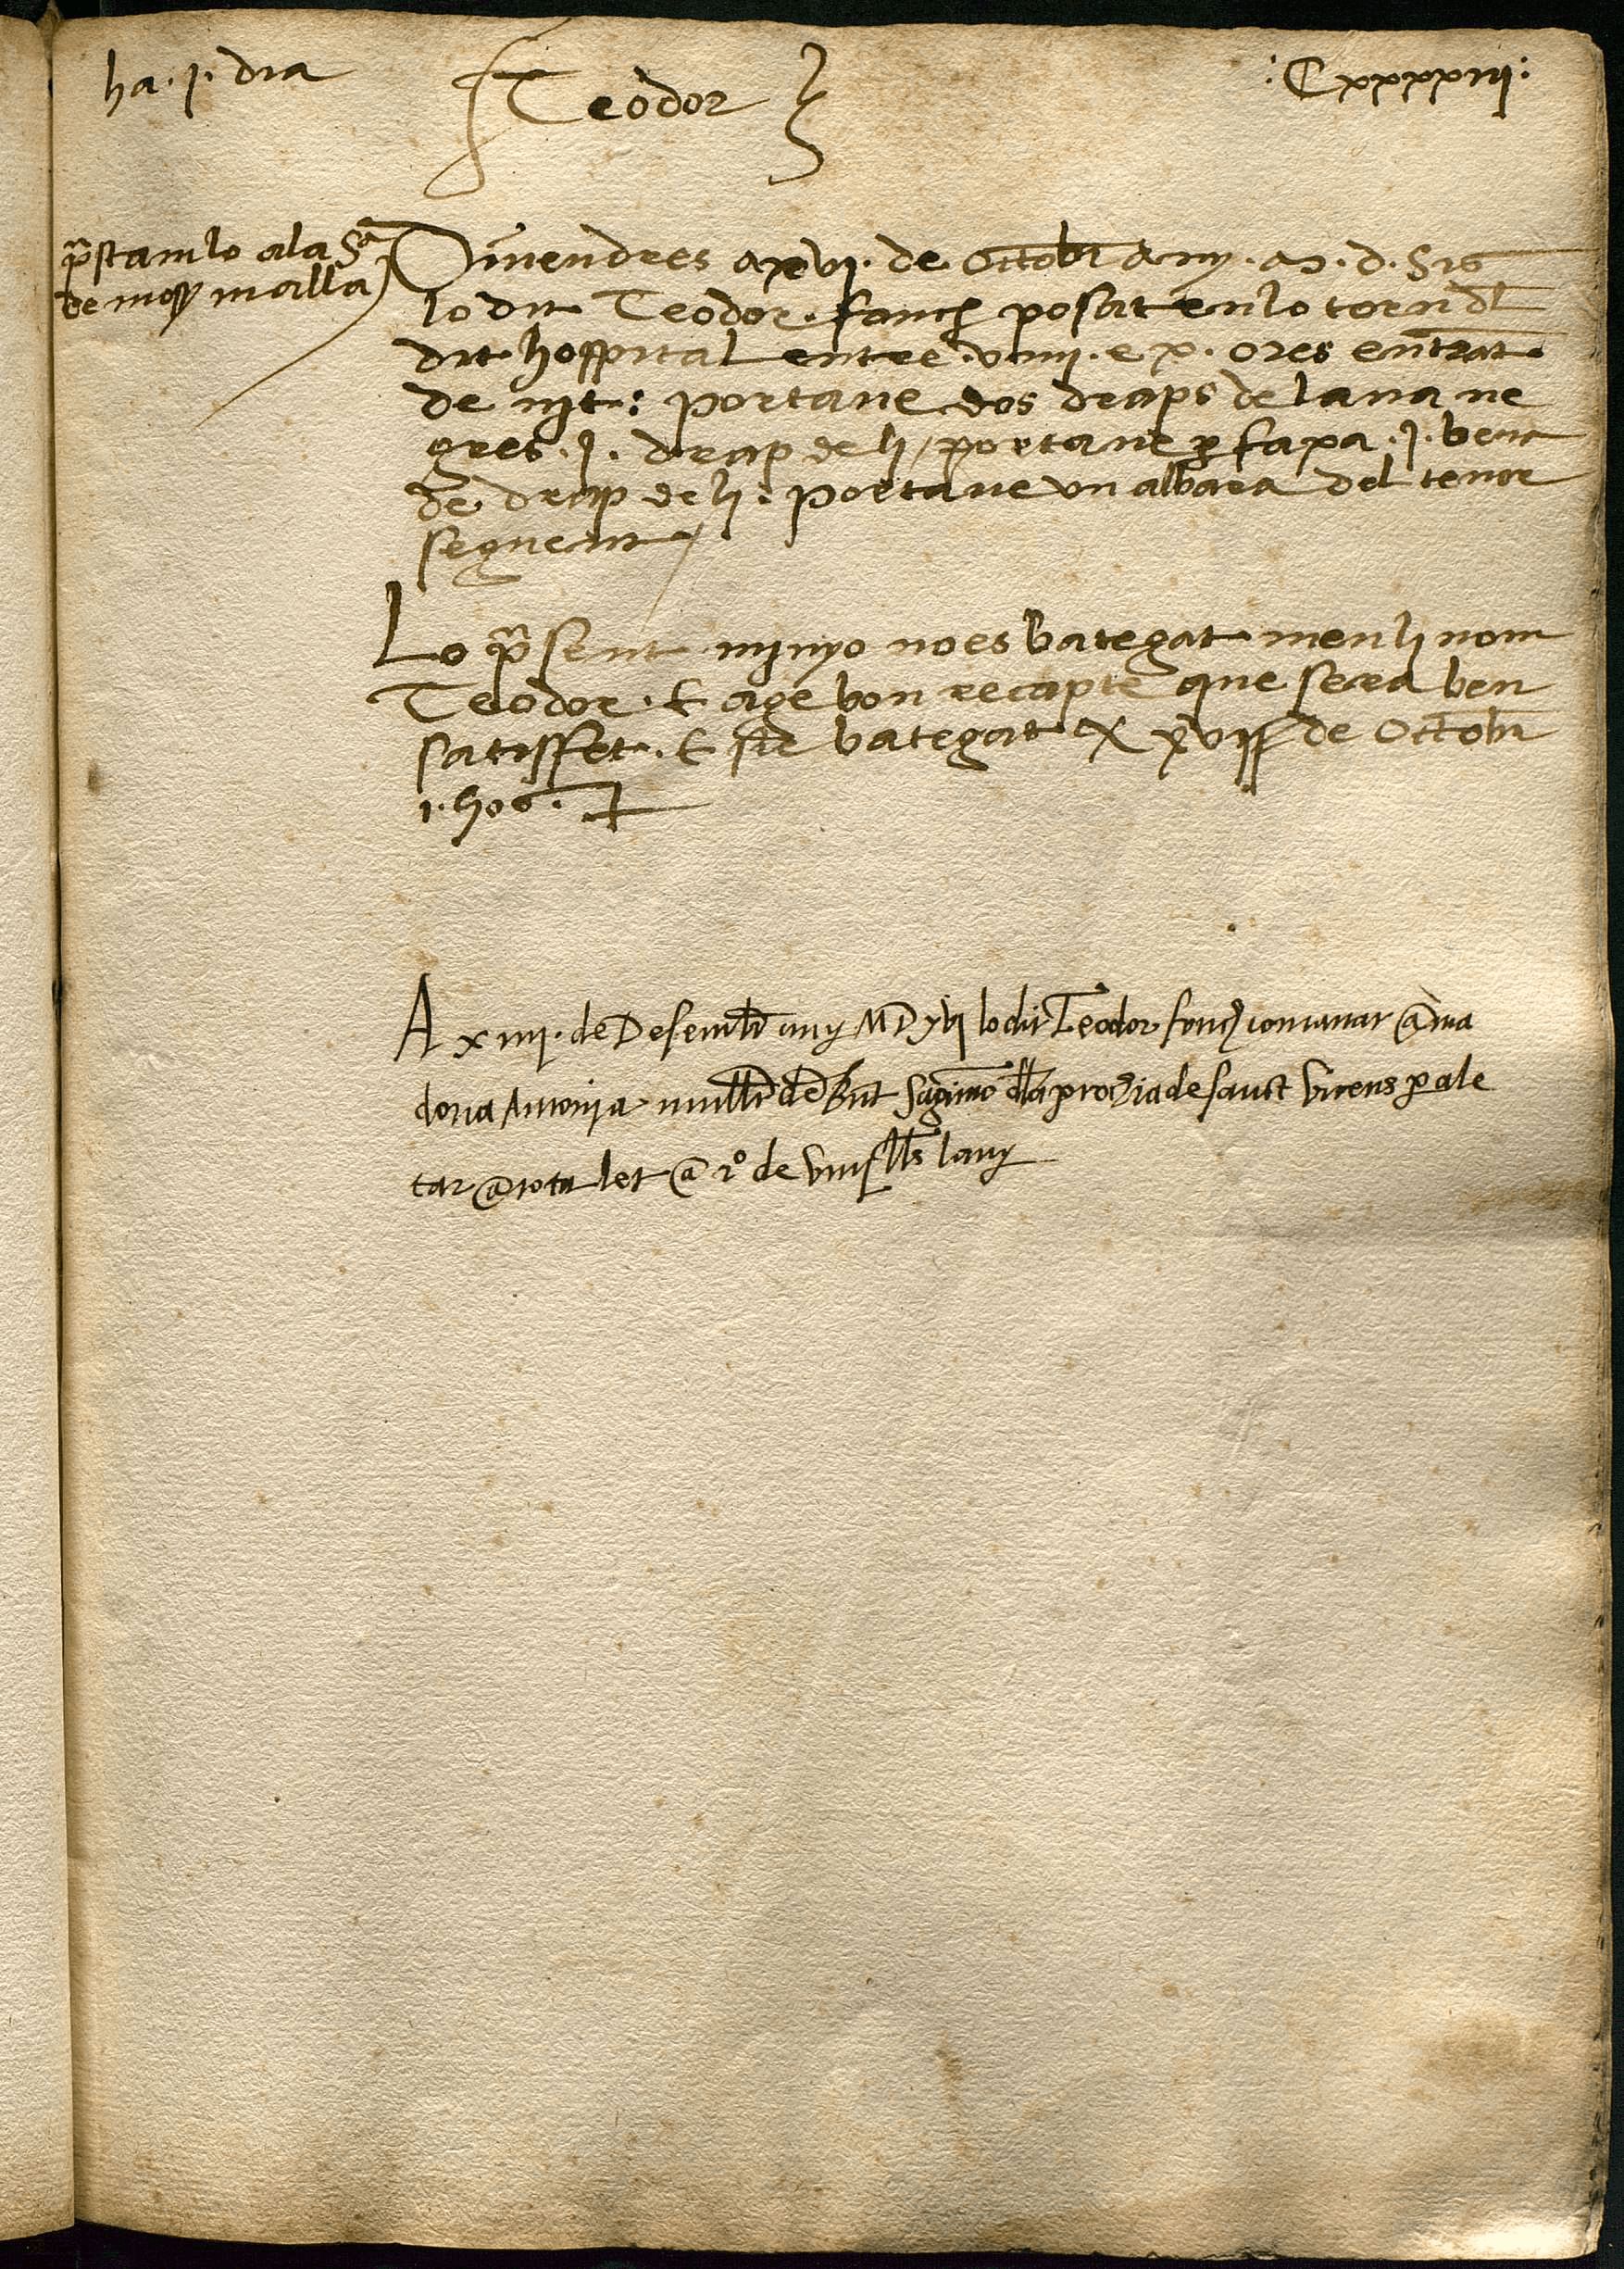 ha . j . dia
Teodor
: Cxxxxiij :
p̃stamlo ala Sa
de moss malla
Divendres a xvj . de Octobr̃ any . m . d . S16
lo dit Teodor . fonch posat en lo torn dl
dit hospital entre . viiij . e x . ores entrat
de nit : portave dos draps de lana ne
gres . j . drap de li / portave p faxa . j . bent
de drap de li : portave un albara del tenor
seguent /
Lo p̃sent minyo no es bategat menli nom
Teodor . E age bon recapte que sera ben
satisfet . E fie bategat A xvij de Octobr̃
A xiiij . de Desembr̃ any MDxvj lo dit Teodor fonch comanat a ma
dona Antonja mullr̃ de Bnt Sagimo dla prochia de sanct Vicens p ale
tar a tota let a ro de viiij lls lany